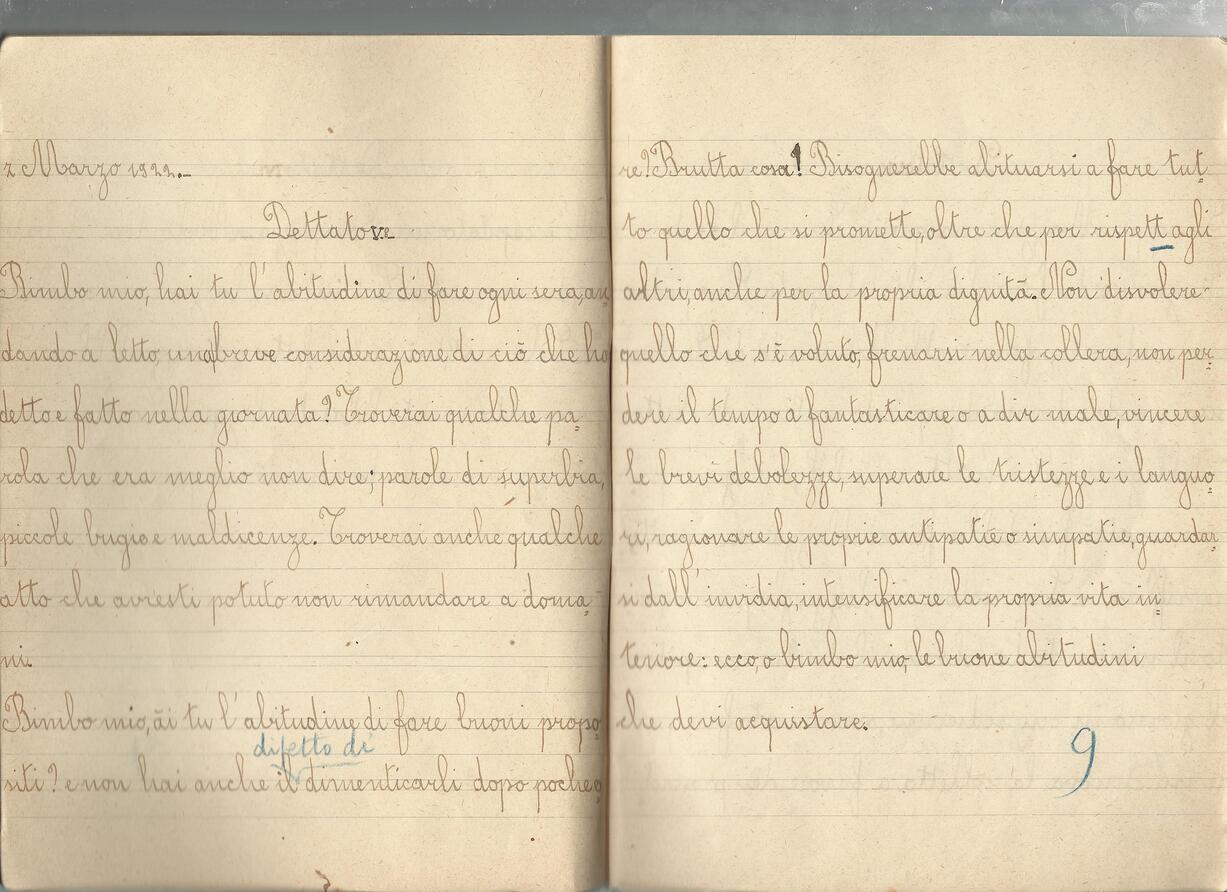 2 Marzo 1922.-
Dettato
Bimbo mio, hai tu l'abitudine di fare ogni sera, an
dando a letto, una breve considerazione di ciò che ho
detto e fatto nella giornata? Troverai qualche pa=
rola che era meglio non dire; parole di superbia,
piccole bugie e maldicenze. Troverai anche qualche
atto che avresti potuto non rimandare a doma=
ni.
Bimbo mio, ài tu l'abitudine di fare buoni propo
difetto di
siti? e non hai anche il dimenticarli dopo poche o
re? Brutta cosa! Bisognerebbe abituarsi a fare tut=
to quello che si promette, oltre che per rispett agli
altri, anche per la propria dignità. Non disvolere
quello che s'è voluto, frenarsi nella collera, non per=
dere il tempo a fantasticare o a dir male, vincere
le brevi debolezze, superare le tristezze e i languo=
ri, ragionare le proprie antipatie o simpatie, guardar
si dall'invidia, intensificare la propria vita in=
teriore: ecco, o bimbo mio, le buone abitudini
che devi acquistare.
9